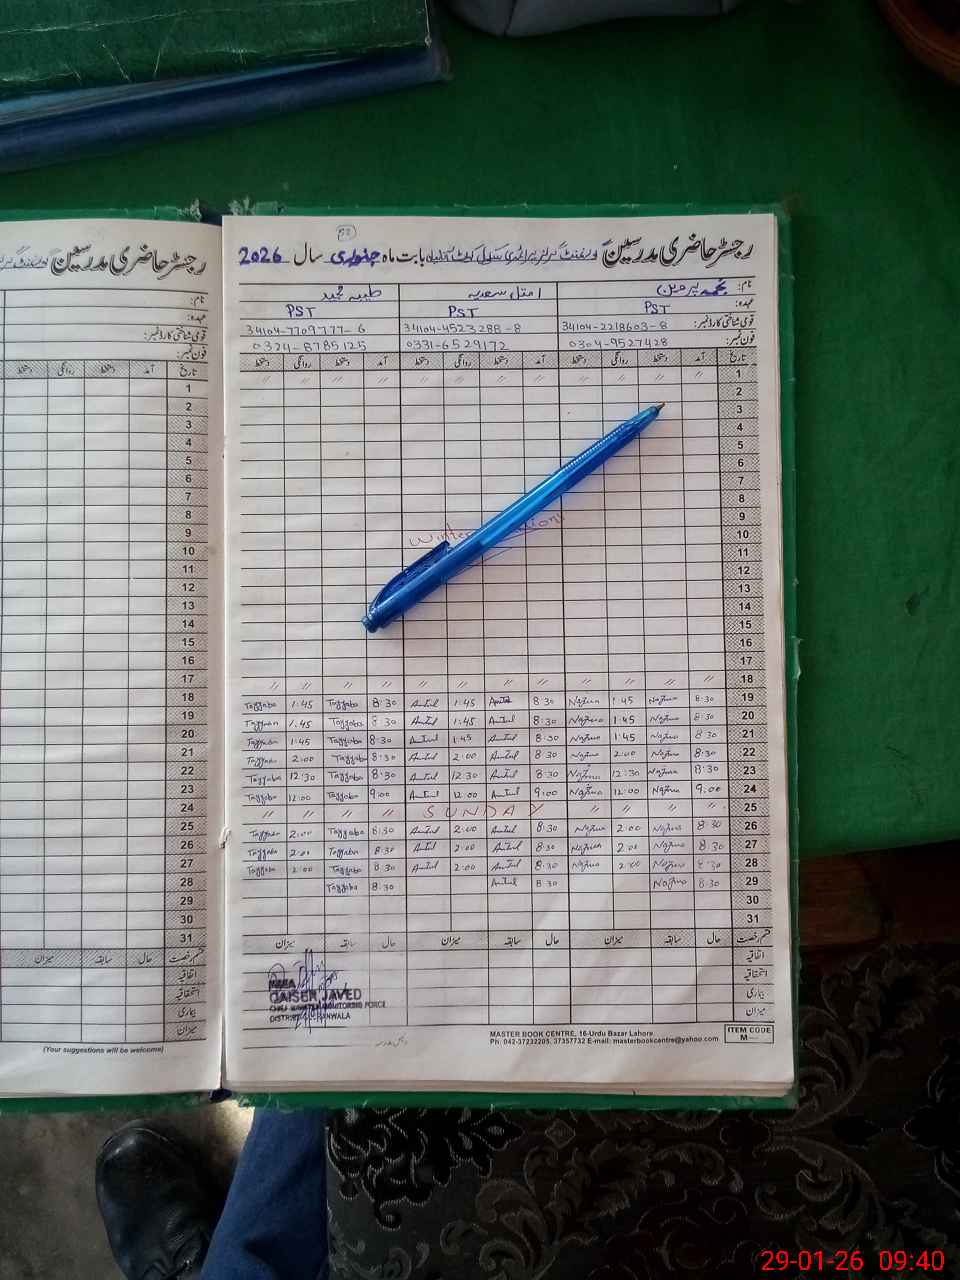 رجسٹر حاضری مدرسین گورنمنٹ گرلز پرائمری سکول بابت ماہ جنوری سال 2026
نام: نجمہ پروین امتل سعدیہ طیبہ مجید
عہدہ: PST PST PST
قومی شناختی کارڈ نمبر: 34104-2218603-8 34104-4523288-8 34104-7709777-6
فون نمبر: 0304-9527428 0331-6529172 0324-8785125
تاریخ آمد دستخط روانگی دستخط آمد دستخط روانگی دستخط آمد دستخط روانگی دستخط
1 // // // // // // // // // // // //
2
3
4
5
6
7
8
9
Winter
10
11
12
13
14
15
16
17
18 // // // // // // // // // // // //
19 8:30 Najma 1:45 Najma 8:30 Amtul 1:45 Amtul 8:30 Tayyaba 1:45 Tayyaba
20 8:30 Najma 1:45 Najma 8:30 Amtul 1:45 Amtul 8:30 Tayyaba 1:45 Tayyaba
21 8:30 Najma 1:45 Najma 8:30 Amtul 1:45 Amtul 8:30 Tayyaba 1:45 Tayyaba
22 8:30 Najma 2:00 Najma 8:30 Amtul 2:00 Amtul 8:30 Tayyaba 2:00 Tayyaba
23 8:30 Najma 12:30 Najma 8:30 Amtul 12:30 Amtul 8:30 Tayyaba 12:30 Tayyaba
24 9:00 Najma 12:00 Najma 9:00 Amtul 12:00 Amtul 9:00 Tayyaba 12:00 Tayyaba
25 // // // // SUNDAY // // // //
26 8:30 Najma 2:00 Najma 8:30 Amtul 2:00 Amtul 8:30 Tayyaba 2:00 Tayyaba
27 8:30 Najma 2:00 Najma 8:30 Amtul 2:00 Amtul 8:30 Tayyaba 2:00 Tayyaba
28 8:30 Najma 2:00 Najma 8:30 Amtul 2:00 Amtul 8:30 Tayyaba 2:00 Tayyaba
29 8:30 Najma 8:30 Amtul 8:30 Tayyaba
30
31
قسم رخصت حال سابقہ میزان حال سابقہ میزان حال سابقہ میزان
اتفاقیہ
استحقاقیہ
بیماری
میزان
QAISER JAVED
CHIEF MINISTER MONITORING FORCE
MASTER BOOK CENTRE, 16-Urdu Bazar Lahore.
Ph: 042-37232205, 37357732 E-mail: masterbookcentre@yahoo.com
ITEM CODE
M---
رجسٹر حاضری مدرسین
نام:
عہدہ:
قومی شناختی کارڈ نمبر:
فون نمبر:
تاریخ آمد دستخط روانگی دستخط
1
2
3
4
5
6
7
8
9
10
11
12
13
14
15
16
17
18
19
20
21
22
23
24
25
26
27
28
29
30
31
قسم رخصت حال سابقہ میزان
اتفاقیہ
استحقاقیہ
بیماری
میزان
(Your suggestions will be welcome)
29-01-26 09:40